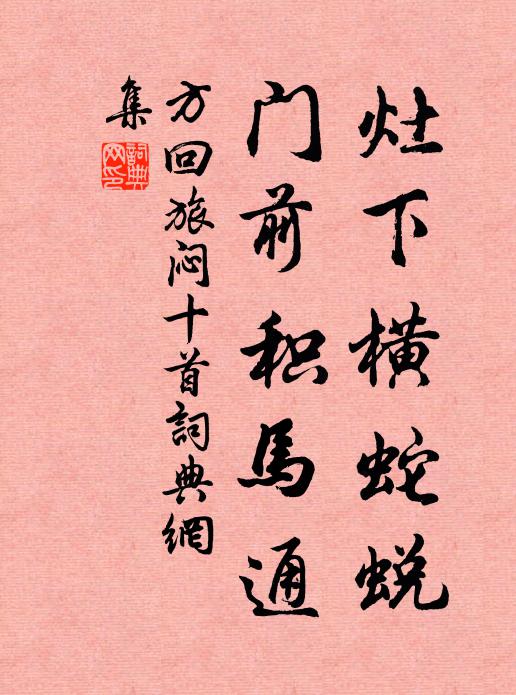 灶下横蛇蜕
门前积馬通
方回旅闷十首詞典網
集
詞典網印